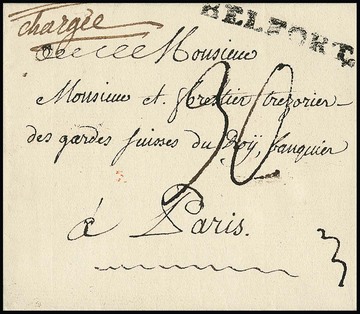 Chargée
BELFORT
Monsieur
Monsieur et. forestier trezorier
des gardes suisses du Roÿ, banquier
30
à Paris.
3